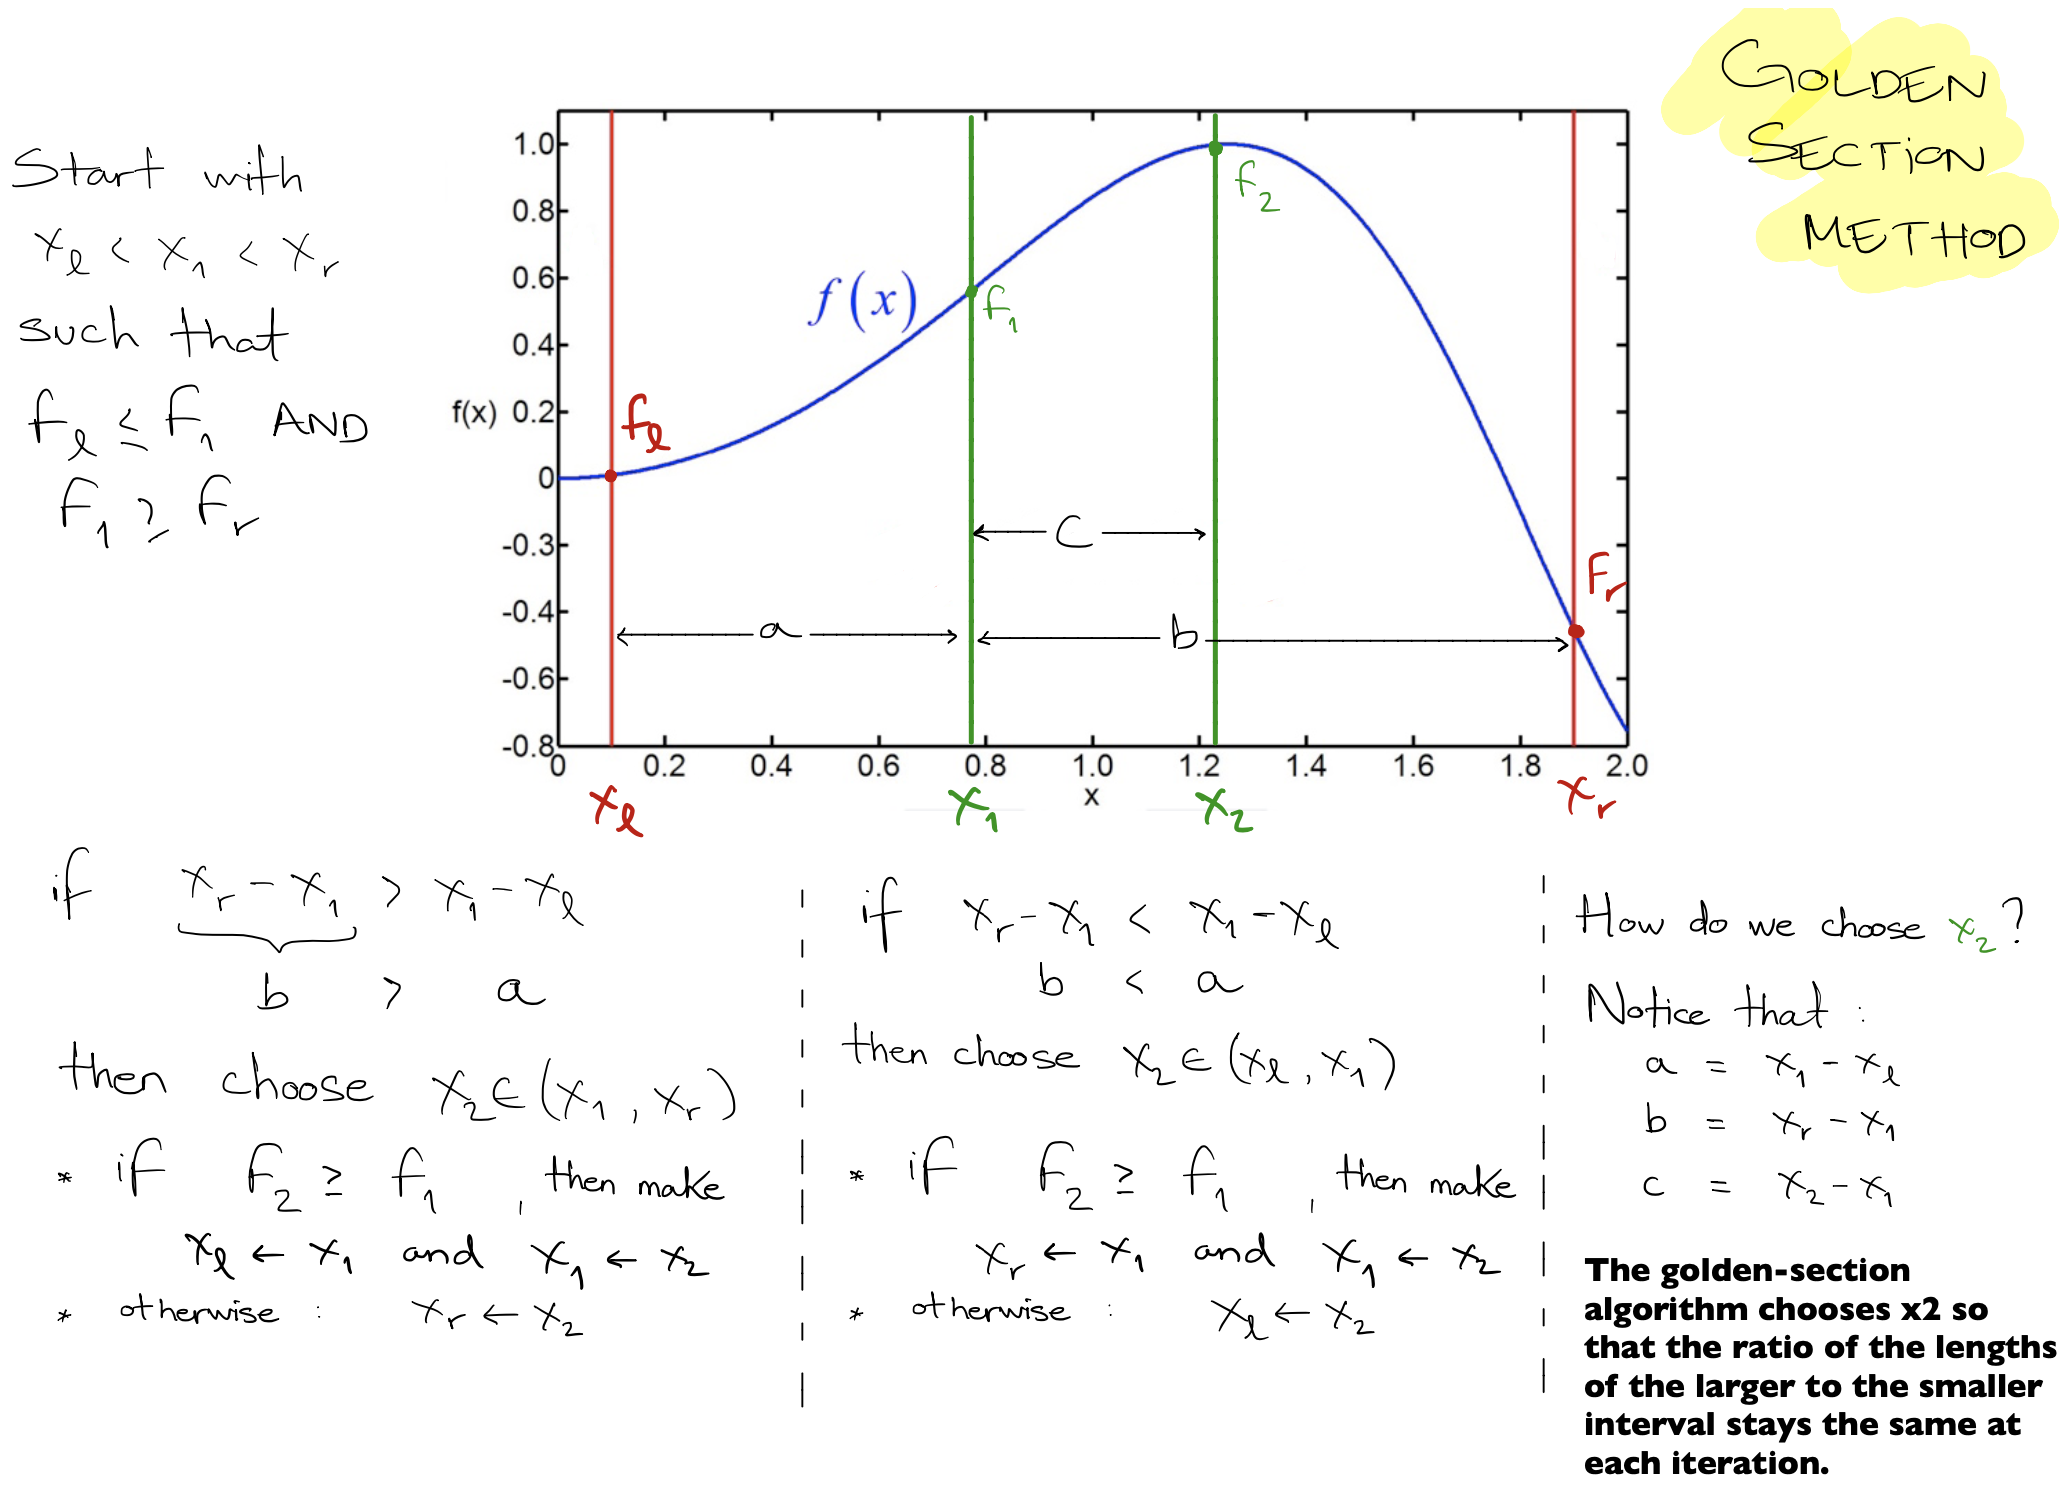 GOLDEN
SECTION
METHOD
Start with
x_ℓ < x_1 < x_r
such that
f_ℓ ≤ f_1 AND
f_1 ≥ f_r
1.0
0.8
0.6
0.4
f(x) 0.2
0
-0.3
-0.4
-0.6
-0.8
f(x)
f_ℓ
f_1
f_2
f_r
c
a
b
0 0.2 0.4 0.6 0.8 1.0 1.2 1.4 1.6 1.8 2.0
x
x_ℓ x_1 x_2 x_r
if x_r - x_1 > x_1 - x_ℓ
b > a
then choose x_2 ∈ (x_1, x_r)
* if f_2 ≥ f_1, then make
x_ℓ ← x_1 and x_1 ← x_2
* otherwise : x_r ← x_2
if x_r - x_1 < x_1 - x_ℓ
b < a
then choose x_2 ∈ (x_ℓ, x_1)
* if f_2 ≥ f_1, then make
x_r ← x_1 and x_1 ← x_2
* otherwise : x_ℓ ← x_2
How do we choose x_2?
Notice that :
a = x_1 - x_ℓ
b = x_r - x_1
c = x_2 - x_1
The golden-section
algorithm chooses x2 so
that the ratio of the lengths
of the larger to the smaller
interval stays the same at
each iteration.